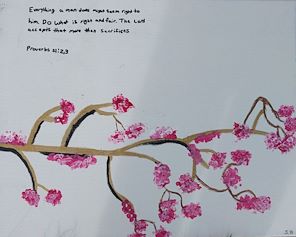 Everything a man does might seem right to
him. Do what is right and fair. The Lord
accepts that more than sacrifices
Proverbs 21:2,3